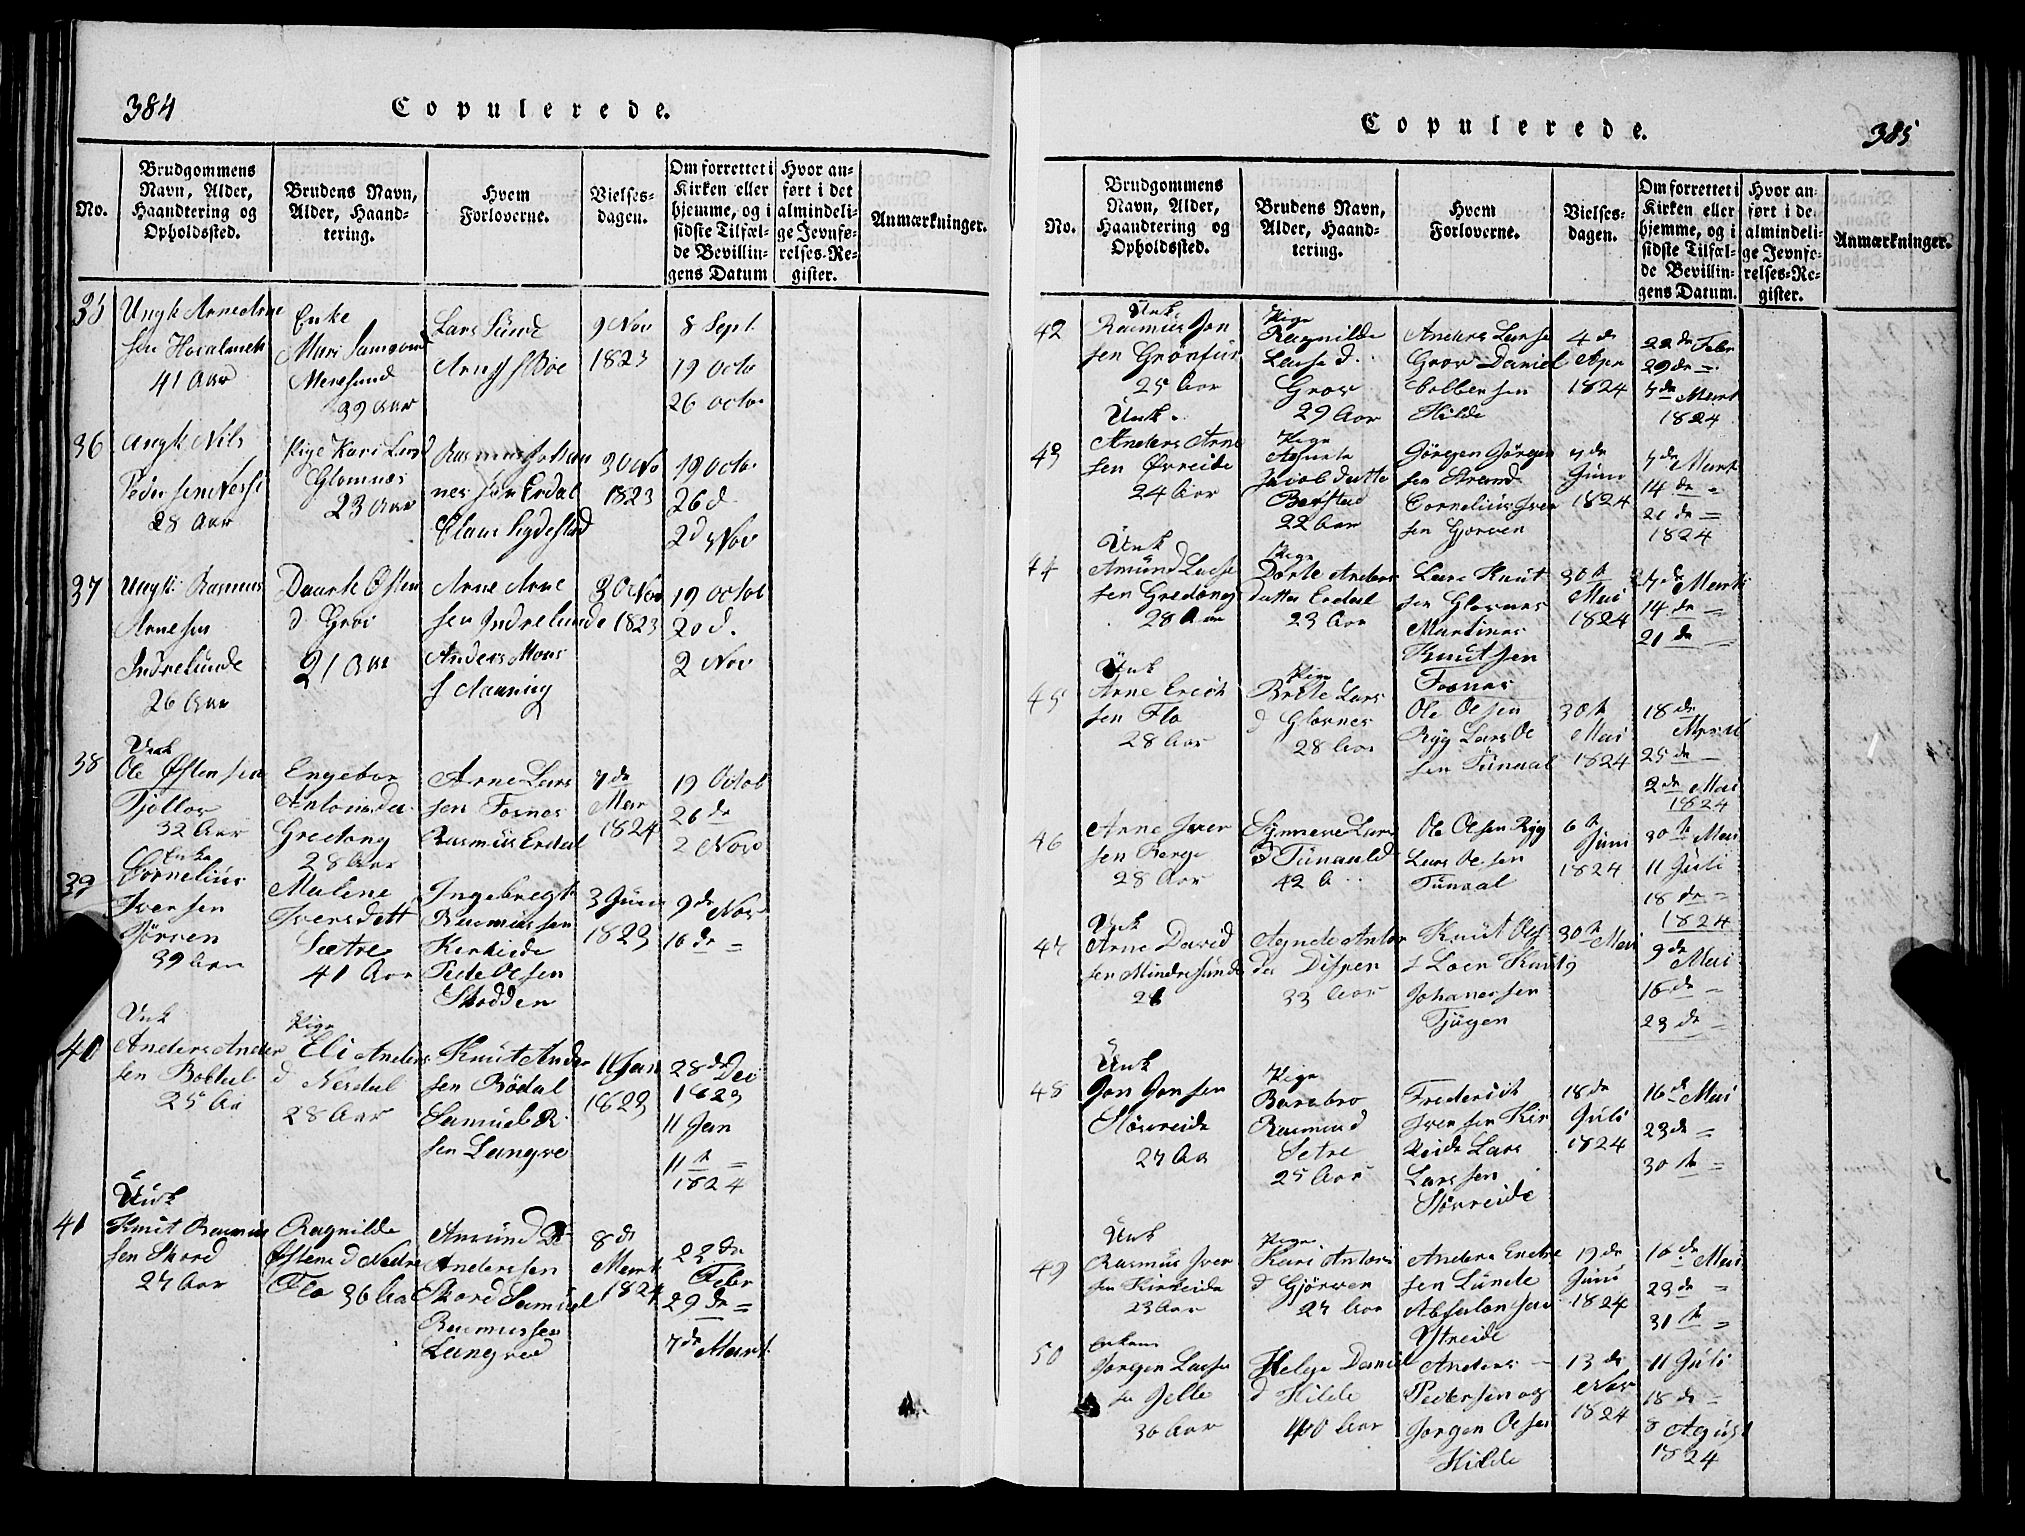 384
Copulerede.
No.
Brudgommens
Navn, Alder,
Haandtering og
Opholdssted.
Brudens Navn,
Alder, Haand-
tering.
Hvem
Forloverne.
Vielses-
dagen.
Om forrettet i
Kirken eller
hjemme, og i
sidste Tilfæl-
de Bevillin-
gens Datum
Hvor an-
ført i det
almindeli-
ge Jevnfø-
relses-Re-
gister.
Anmærkninger.
35
Ungk Arne Arne
sen
41 Aar
Enke
Mari
39 Aar
Lars Sunde
Arne
9 Nov
1823
8 Sept.
19 Octo
26 Octo
36
Ungk Nils
Peder sen
28 Aar
Pige Kari Lars d
Glomnes
23 Aar
Rasmus Johan
nes sen Erdal
Claus
30 No
1823
19 Octo
26 d
2 d Nov
37
Ungk Rasmus
Arnesen
Indrelunde
26 Aar
Daarte Østen
d Grov
21 Aar
Arne Arne
sen Indrelunde
Anders Mons
30 Nov
1823
19 Octob
20 d.
2 Nov
38
Unk
Ole Østensen
Tjellor
32 Aar
Engebor
Antonisda
Gredong
28 Aar
Arne Lars
sen Fosnes
Rasmus Erdal
7 de
Mar
1824
19 Octob
26 de
2 Nov
39
Enke
Cornelius
Iversen
39 Aar
Malene
Iversdatt
Sætre
41 Aar
Ingebregt
Rasmussen
Kirkeide
Peder Olsen
Skodden
3 Juni
1823
9 de Nov
16 de =
40
Unk
Anders Ander
sen
25 Aa
Pige
Eli Anders
d Nesdal
28 Aar
Knut Ander
sen Bödal
Samuel R
sen Langve
11 Jan
1823
28 de Dec
1823
11 Jan
11 te =
1824
41
Unk
Knut Rasmus
sen Skord
27 Aar
Ragnilde
Østens d Nedre
Flo 36 Aar
Amund R
Andersen
Skord Samuel
Rasmussen
Langved
8 de
Mart
1824
23 de
Febr
29 de =
7 de Mart.
385
Copulerede.
No.
Brudgommens
Navn, Alder,
Haandtering og
Opholdssted.
Brudens Navn,
Alder, Haand-
tering.
Hvem
Forloverne.
Vielses-
dagen.
Om forrettet i
Kirken eller
hjemme, og i
sidste Tilfæl-
de Bevillin-
gens Datum.
Hvor an-
ført i de
almindeli-
ge Jevnfø-
relses-Re-
gister.
Anmærkninger.
42
Unk
Rasmus Jon
sen
25 Aar
Pige
Ragnilde
Larse d.
Grov
29 Aar
Anders Larse
Grov Daniel
Colbensen
Hilde
4 de
Apr
1824
22 de Febr
29 de =
7 de Mart
1824
43
Unk
Anders Arne
sen Ørreide
24 Aar
Pige
Agnete
Jacob datte
Bøstad
22 Aar
Jörgen Jörgen
sen Strand
Cornelius Iver
sen Gjorven
7 de
Juni
1824
7 de Mart
14 de =
21 de =
1824
44
Unk
Amund Lasse
sen Gredong
28 Aar
Pige
Dorte Anders
datter Erdal
23 Aar
Lars Knut
sen Glosnes
Martinus
Knutsen
Fosnes
30 te
Mai
1824
7 de Marti
14 de =
21 de =
45
Unk
Arne Erick
sen Flo
28 Aar
Pige
Brite Lars
d Glosnes
28 Aar
Ole Olsen
Ryg Lars Ole
sen Tunaal
30 te
Mai
1824
18 de
April
25 de
2 de Mai
1824
46
Arne Iver
sen Berge
28 Aar
Synneve Lars
d Tunaald
42 A
Ole Olsen Ryg
Lars Olsen
Tunaal
6 te
Juni
1824
30 te Mai
11 Juli
18 de =
1824
47
Unk
Arne David
sen Mindresunde
Agnete Anton
da Dispen
33 Aar
Knut Ols
s Loen Knut
Johanessen
Tjugen
30 te Mai
9 de
Mai
16 de =
23 de =
48
Unk
Jon Jonsen
Størreide
27 Aa
Pige
Barebro
Rasmus d
Setre
25 Aar
Frederick
Iversen Kir
keide Lars
Larssen
Störreide
18 de
Juli
1824
16 de Mai
23 de =
30 te =
49
Unk
Rasmus Iver
sen Kirkeide
23 Aar
Pige
Kari Antonis
d Gjörven
27 Aar
Anders Endre
sen Lunde
Absalonsen
Ytreide
19 de
Juni
1824
16 de Mai
23 de =
31 te =
50
Enkem
Jorgen Lasse
sen Jelle
36 Aar
Helge Daniel
d Hilde
40 Aar
Anders
Pedersen og
Jorgen Olsen
Hilde
13 de
Nov
1824
11 Juli
18 de =
8 August
1824